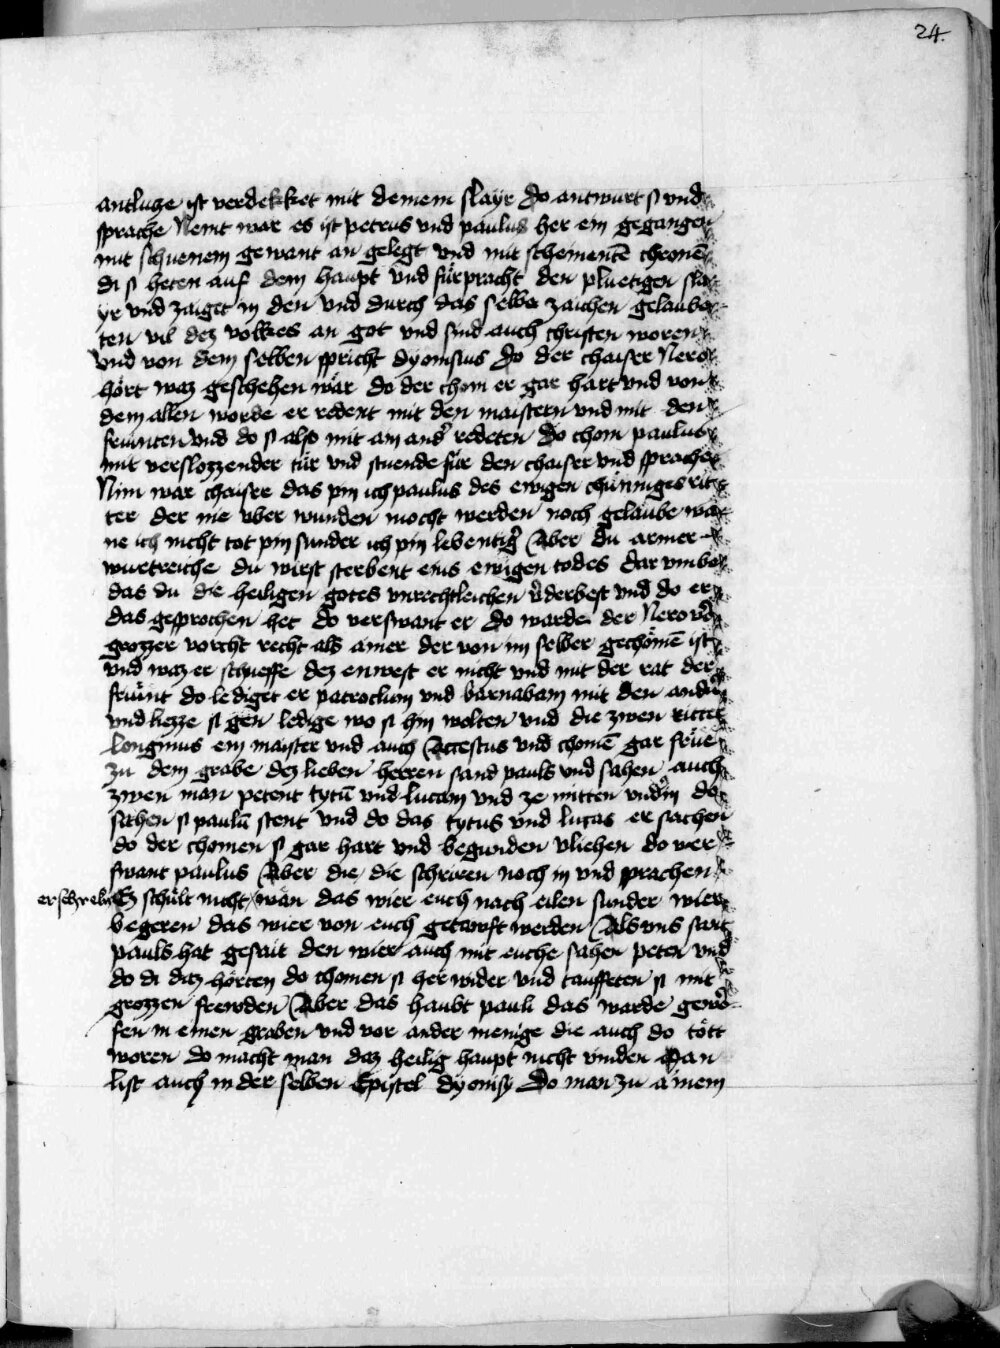 24.
antlucze ist verdekket mit deinem slayr Do antwurt si und
sprache Nemt war es ist petrus und paulus her ein gegangen
mit schuenem gewant an gelegt und mit scheinentē chronē
di si heten auf dem haupt und fürpracht den pluetigen sla
yr und zaiget in den und durch das selbe zaichen gelaube
ten vil dez volkes an got und sind auch christen woren
Und von dem selben spricht dyonisius Do der chaiser Nero
hört waz geschehen wär do der chom er gar hart und von
dem allen worde er redent mit den maistern und mit den
freunten und do si also mit am and' redeten Do chom paulus
mit verslozzender tür und stuende für den chaiser und sprache
Nim war chaiser das pin ich paulus des ewigen chünniges rit
ter der nie uber wunden mocht werden noch gelaube wa
ne ich nicht tot pin sunder ich pin lebentig' Aber du armer
wuetreiche du wirst sterbent eins ewigen todes dar umbe
das du die heiligen gotes unrechtleichen v'derbest und do er
das gesprochen het do verswant er Do warde der Nero vō
grozzer vorcht recht als ainer der von im selber gechömē ist
und waz er schueffe dez enwest er nicht und mit der rat der
freünt do lediget er patroclum und barnabam mit den andern
und liezze si gen ledige wo si hin wolten und die zwen ritter
Longinus ein maister und auch Accestus und chomē gar frue
zu dem grabe dez lieben herren sand pauls und sahen auch
zwen man petent tytū und lucam und ze mitten und' in do
sahen si paulū stent und do das tytus und lucas er sachen
do der chomen si gar hart und begunden vliehen do ver
swant paulus Aber die die schriren noch in und sprachen
erschrekn Es schült nicht wän das wier euch nach eilen sunder wier
begeren das wier von euch getawft werden Als uns sant
pauls hat gesait den wier auch mit euche sahen peten und
do di daz hörten do chomen si her wider und tauffeten si mit
grozzen frewden Aber das haubt pauli das warde gewo
fen in einen graben und vor ander menige die auch do tött
woren do macht man daz heilig haupt nicht vinden Man
list auch in der selben Epistel dyonisy Do man zu ainem